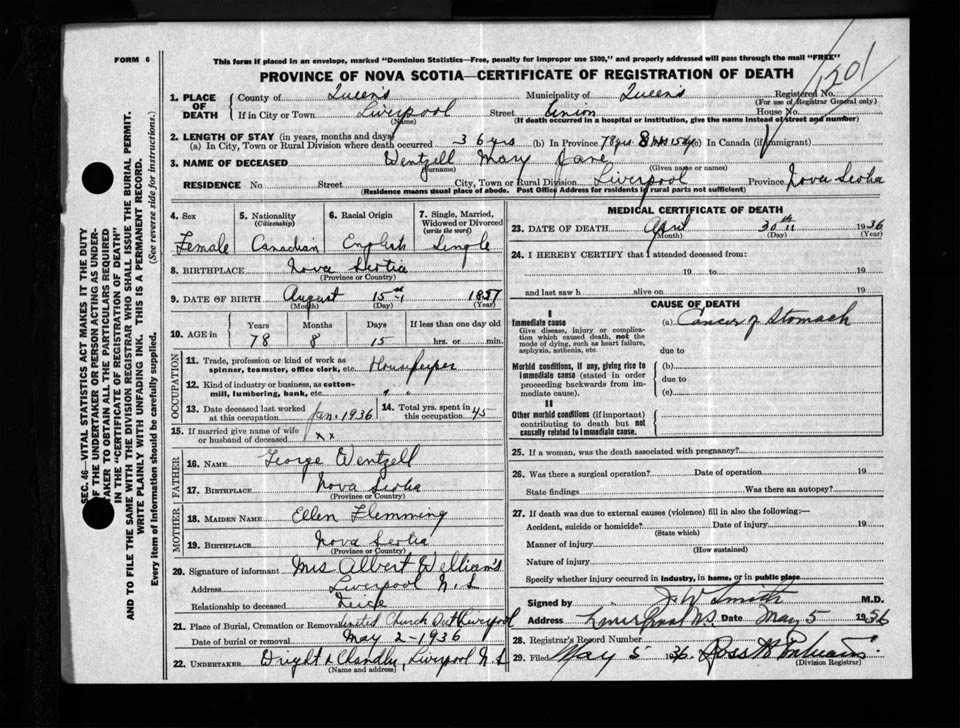 FORM 6
This form if placed in an envelope, marked "Dominion Statistics—Free, penalty for improper use $300," and properly addressed will pass through the mail "FREE"
PROVINCE OF NOVA SCOTIA—CERTIFICATE OF REGISTRATION OF DEATH
1201
1. PLACE OF DEATH
County of Queens Municipality of Queens Registered No.
(For use of Registrar General only)
If in City or Town Liverpool Street Union House No.
(Name) (If death occurred in a hospital or institution, give the name instead of street and number)
2. LENGTH OF STAY (in years, months and days)
(a) In City, Town or Rural Division where death occurred 36 yrs (b) In Province 78 yrs 8 mos 15 dys (c) In Canada (if immigrant)
3. NAME OF DECEASED Wentzell Mary Jane
(Surname) (Given name or names)
RESIDENCE No Street City, Town or Rural Division Liverpool Province Nova Scotia
(Residence means usual place of abode. Post Office Address for residents in rural parts not sufficient)
4. Sex
Female
5. Nationality
(Citizenship)
Canadian
6. Racial Origin
English
7. Single, Married, Widowed or Divorced
(write the word)
Single
8. BIRTHPLACE Nova Scotia
(Province or Country)
9. DATE OF BIRTH August 15th 1857
(Month) (Day) (Year)
10. AGE in
Years Months Days If less than one day old
78 8 15 hrs. or min.
OCCUPATION
11. Trade, profession or kind of work as
spinner, teamster, office clerk, etc. Housekeeper
12. Kind of industry or business, as cotton-
mill, lumbering, bank, etc. " "
13. Date deceased last worked
at this occupation Jan. 1936
14. Total yrs. spent in
this occupation 45
15. If married give name of wife
or husband of deceased xx
FATHER
16. NAME George Wentzell
17. BIRTHPLACE Nova Scotia
(Province or Country)
MOTHER
18. MAIDEN NAME Ellen Flemming
19. BIRTHPLACE Nova Scotia
(Province or Country)
20. Signature of informant Mrs Albert Williams
Address Liverpool N.S
Relationship to deceased Niece
21. Place of Burial, Cremation or Removal United Church Liverpool
Date of burial or removal May 2-1936
22. UNDERTAKER Wright & Chandler, Liverpool N.S
(Name and address)
MEDICAL CERTIFICATE OF DEATH
23. DATE OF DEATH April 30th 1936
(Month) (Day) (Year)
24. I HEREBY CERTIFY that I attended deceased from:
19 to 19
and last saw h alive on 19
CAUSE OF DEATH
I
Immediate cause
Give disease, injury or complica-
tion which caused death, not the
mode of dying, such as heart failure,
asphyxia, asthenia, etc.
(a) Cancer of Stomach
due to
Morbid conditions, if any, giving rise to
immediate cause (stated in order
proceeding backwards from im-
mediate cause).
(b)
due to
(c)
II
Other morbid conditions (if important)
contributing to death but not
causally related to immediate cause.
25. If a woman, was the death associated with pregnancy?
26. Was there a surgical operation? Date of operation 19
State findings Was there an autopsy?
27. If death was due to external causes (violence) fill in also the following:—
Accident, suicide or homicide? Date of injury 19
(State which)
Manner of injury
(How sustained)
Nature of injury
Specify whether injury occurred in industry, in home, or in public place
Signed by J. W Smith M.D.
Address Liverpool N.S Date May 5 1936
28. Registrar's Record Number
29. Filed May 5 1936
(Division Registrar)
SEC. 46—VITAL STATISTICS ACT MAKES IT THE DUTY
OF THE UNDERTAKER OR PERSON ACTING AS UNDER-
TAKER TO OBTAIN ALL THE PARTICULARS REQUIRED
IN THE "CERTIFICATE OF REGISTRATION OF DEATH"
AND TO FILE THE SAME WITH THE DIVISION REGISTRAR WHO SHALL ISSUE THE BURIAL PERMIT.
WRITE PLAINLY WITH UNFADING INK. THIS IS A PERMANENT RECORD.
Every item of information should be carefully supplied. (See reverse side for instructions.)